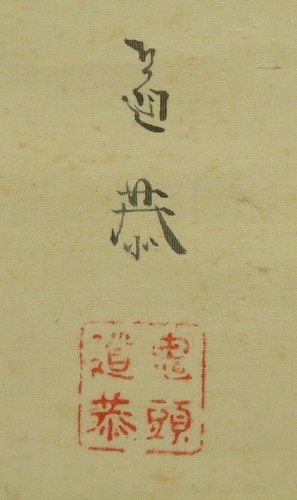 道恭
鬼頭
道恭